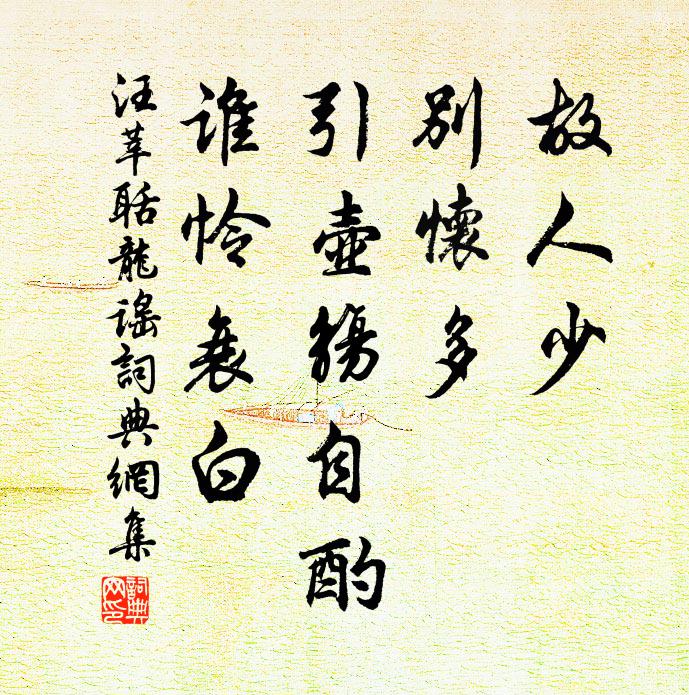 故人少
別懷多
引壺觴自酌
誰怜衰白
汪莘聒龍謠詞典網集
詞典网印